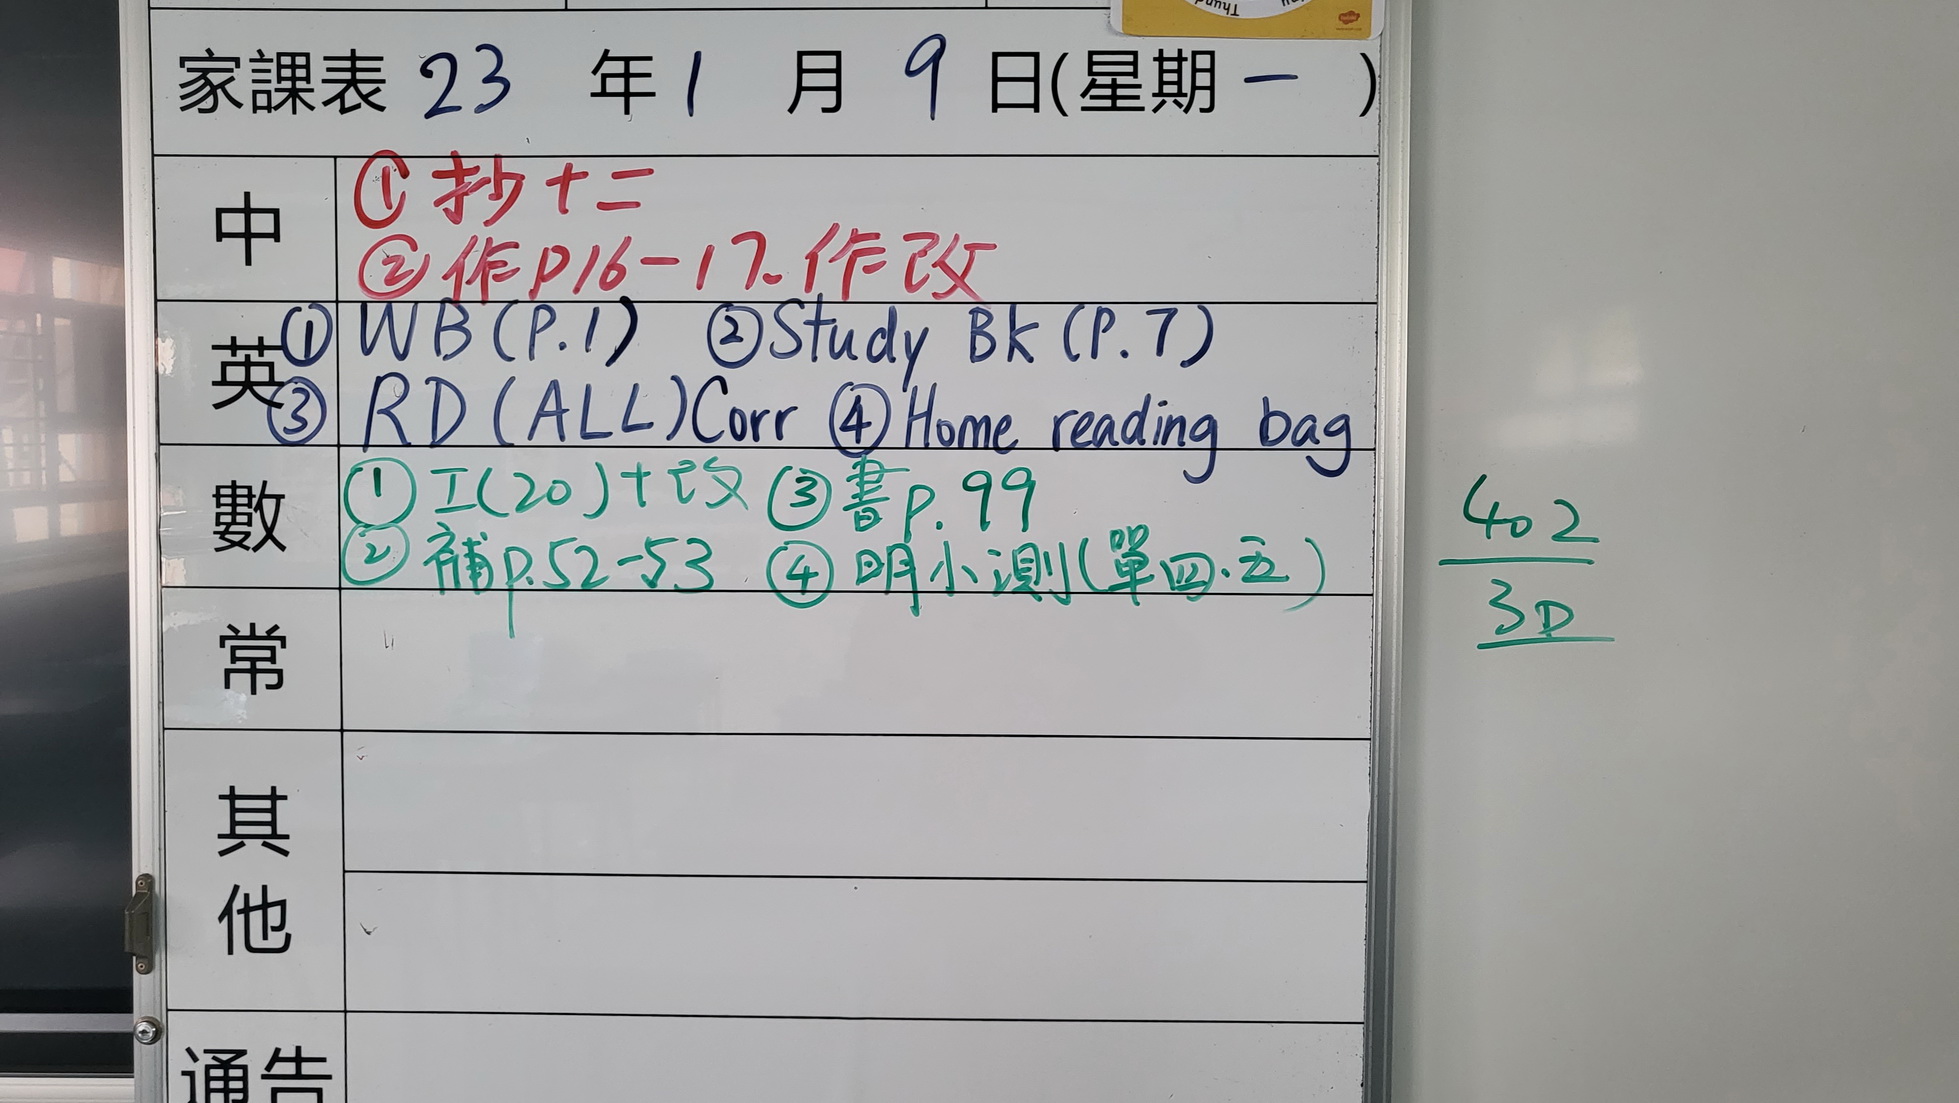 家課表 23 年 1 月 9 日(星期一 )
中
① 抄十二
② 作p16-17、作改
英
① WB(P.1) ② Study Bk (P.7)
③ RD (ALL) Corr ④ Home reading bag
數
① 工(20)+改 ③ 書p.99
② 補p.52-53 ④ 明小測(單四.五)
常
其他
通告
402
3D